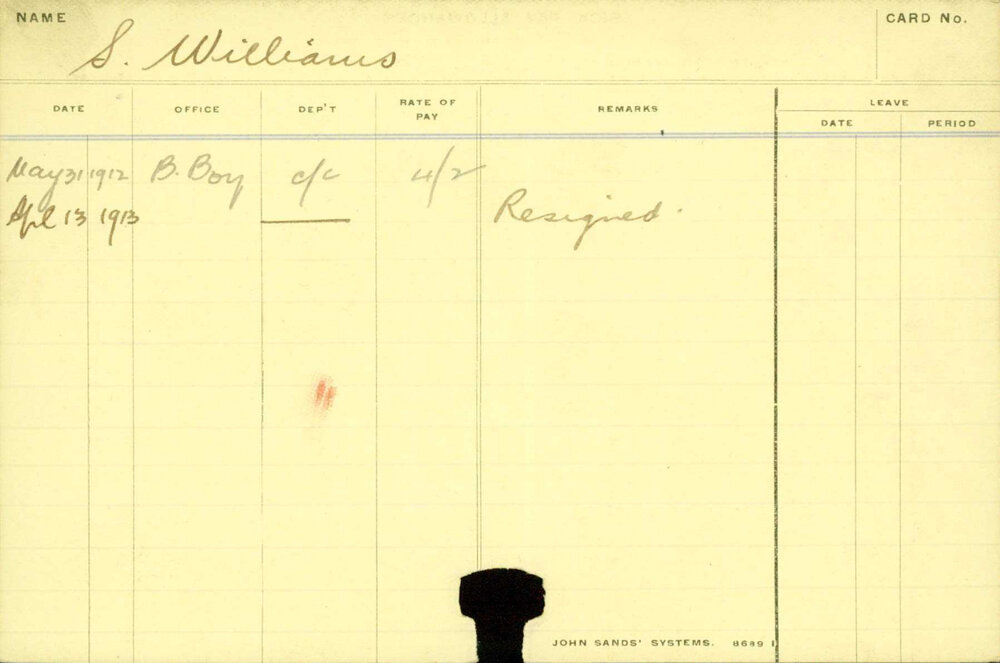 NAME
S. Williams
CARD No.
DATE OFFICE DEP'T RATE OF PAY REMARKS LEAVE
DATE PERIOD
May 31 1912 B. Boy c/c 4/2
Apl 13 1913 Resigned.
JOHN SANDS' SYSTEMS. 8689